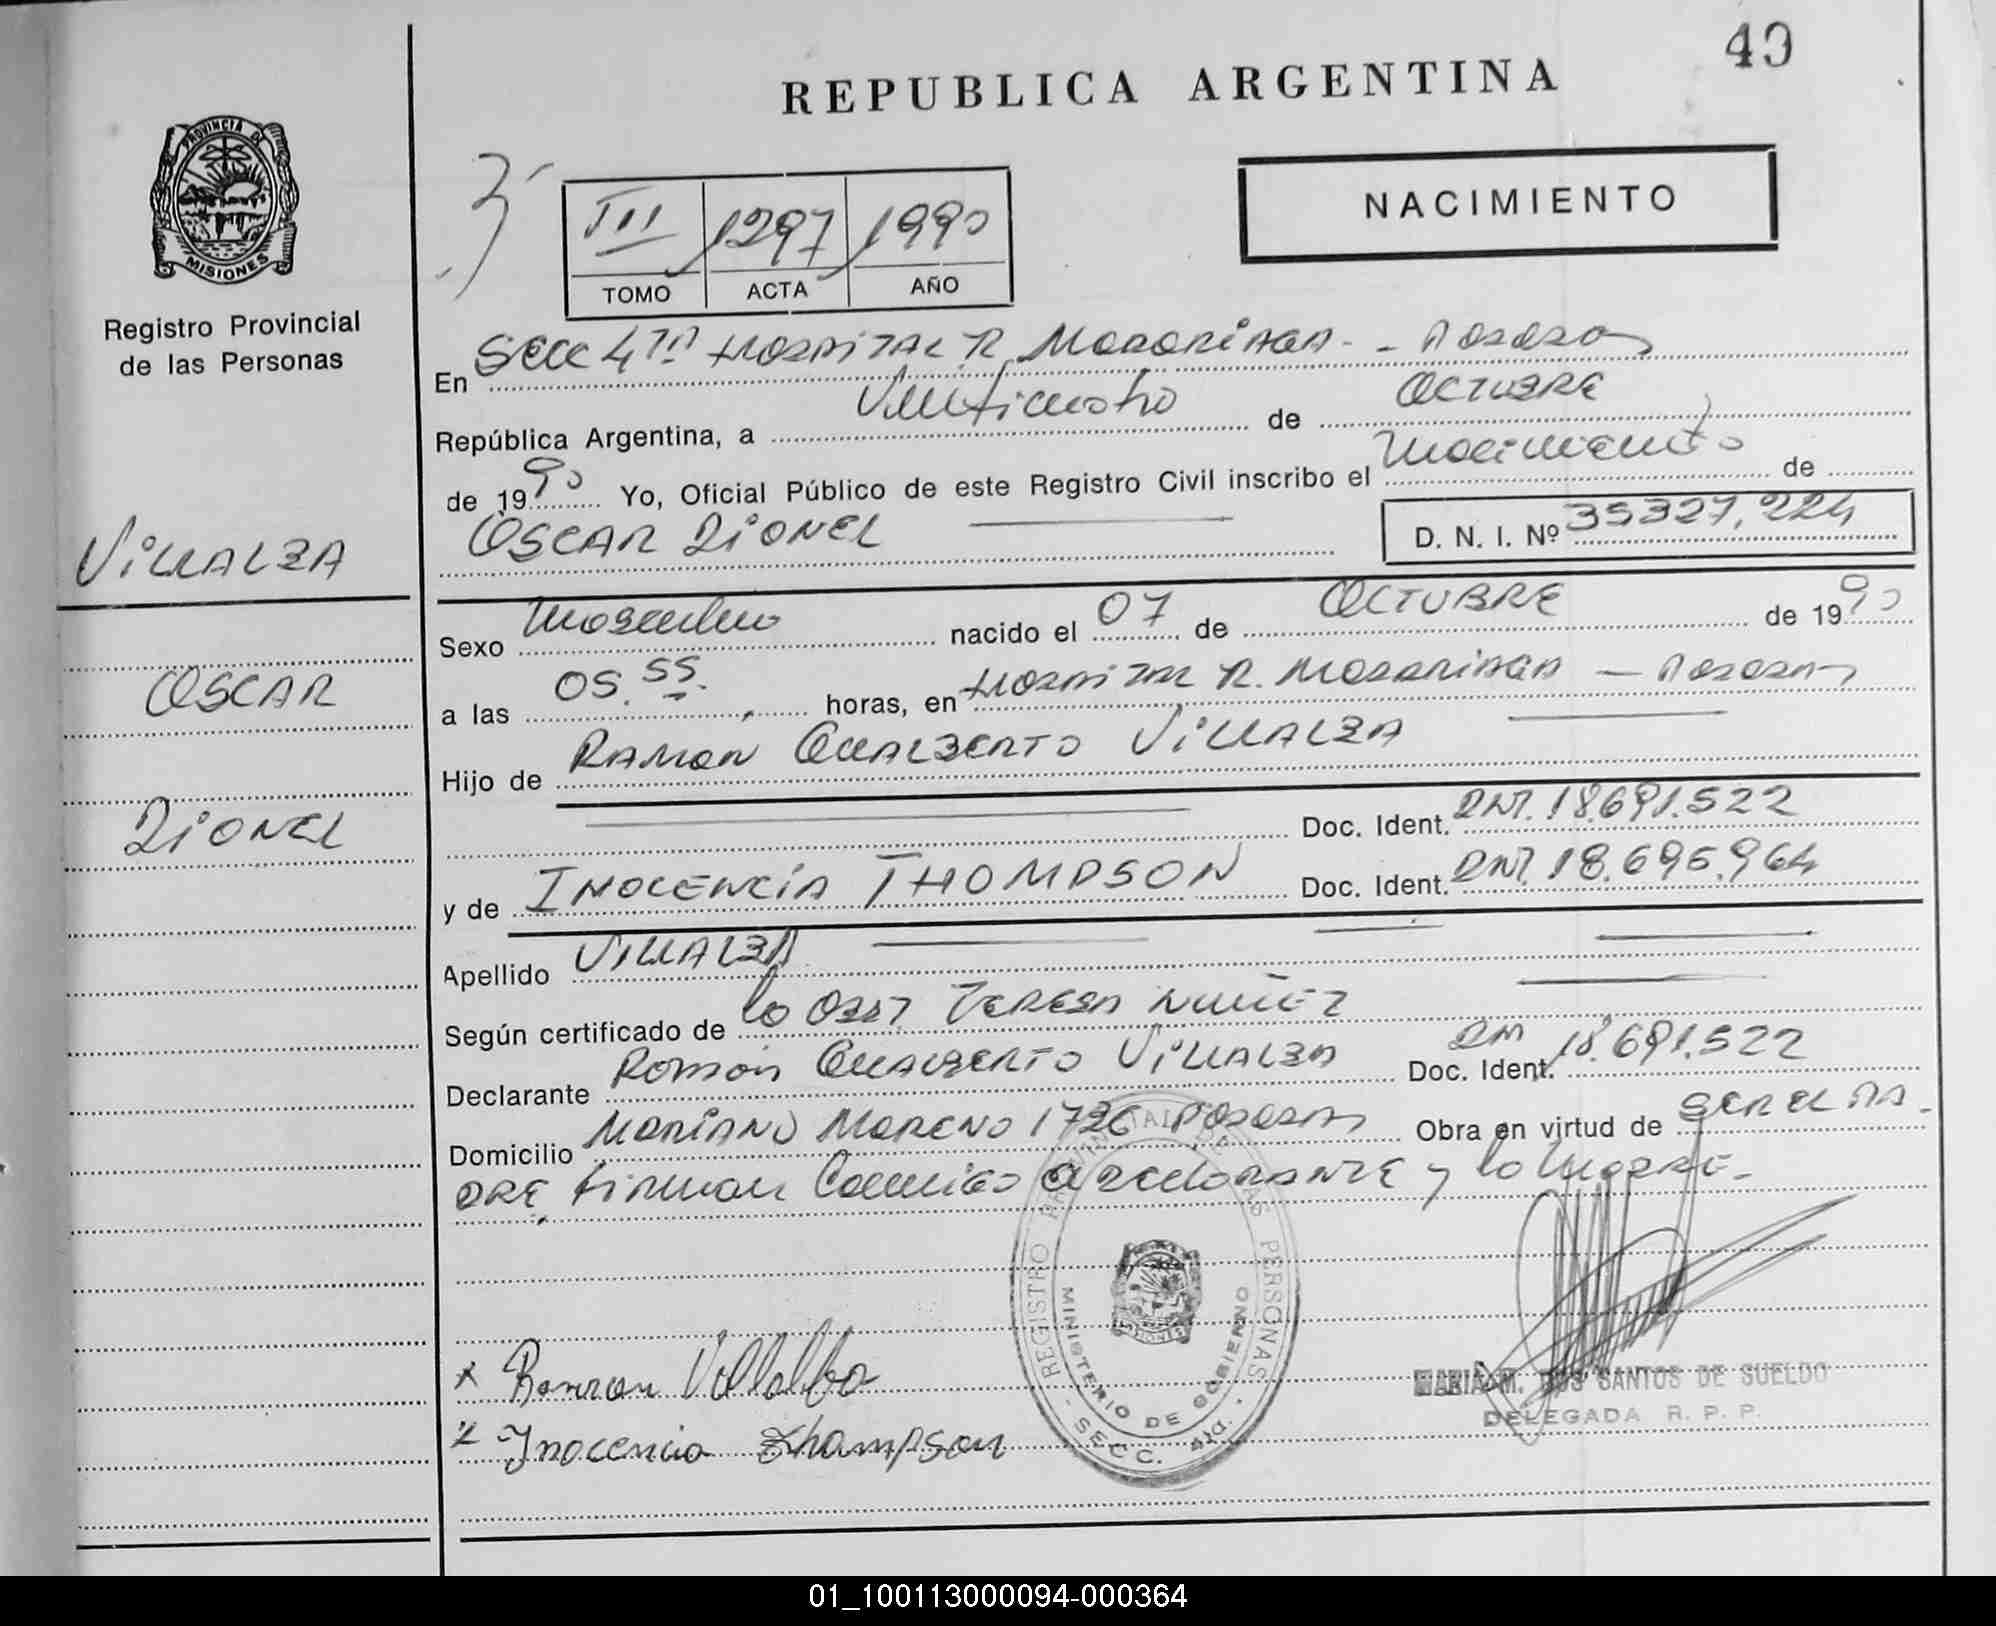 REPUBLICA ARGENTINA
49
PROVINCIA DE
MISIONES
Registro Provincial
de las Personas
III 1297 1990
TOMO ACTA AÑO
NACIMIENTO
En SECC 4TA HOSPITAL R. MADARIAGA - POSADAS
República Argentina, a Veinticuatro de OCTUBRE
de 1990 Yo, Oficial Público de este Registro Civil inscribo el Nacimiento de
OSCAR LIONEL
D. N. I. Nº 35327,224
VILLALBA
OSCAR
LIONEL
Sexo Masculino nacido el 07 de OCTUBRE de 1990
a las 05.55. horas, en HOSPITAL R. MADARIAGA - POSADAS
Hijo de RAMON GUALBERTO VILLALBA
Doc. Ident. DNI. 18.691.522
y de INOCENCIA THOMPSON Doc. Ident. DNI. 18.695.964
Apellido VILLALBA
Según certificado de la OBST TERESA NUÑEZ
Declarante RAMON GUALBERTO VILLALBA Doc. Ident. DNI 18.691.522
Domicilio MARIANO MORENO 1726 POSADAS Obra en virtud de SER EL PA-
DRE, firman Conmigo declarante y la madre-
REGISTRO PROVINCIAL DE LAS PERSONAS
MINISTERIO DE GOBIERNO
SECC. 4ta.
x Ramon Villalba
x Inocencia Thompson
MARIA M. DOS SANTOS DE SUELDO
DELEGADA R. P. P.
01_100113000094-000364